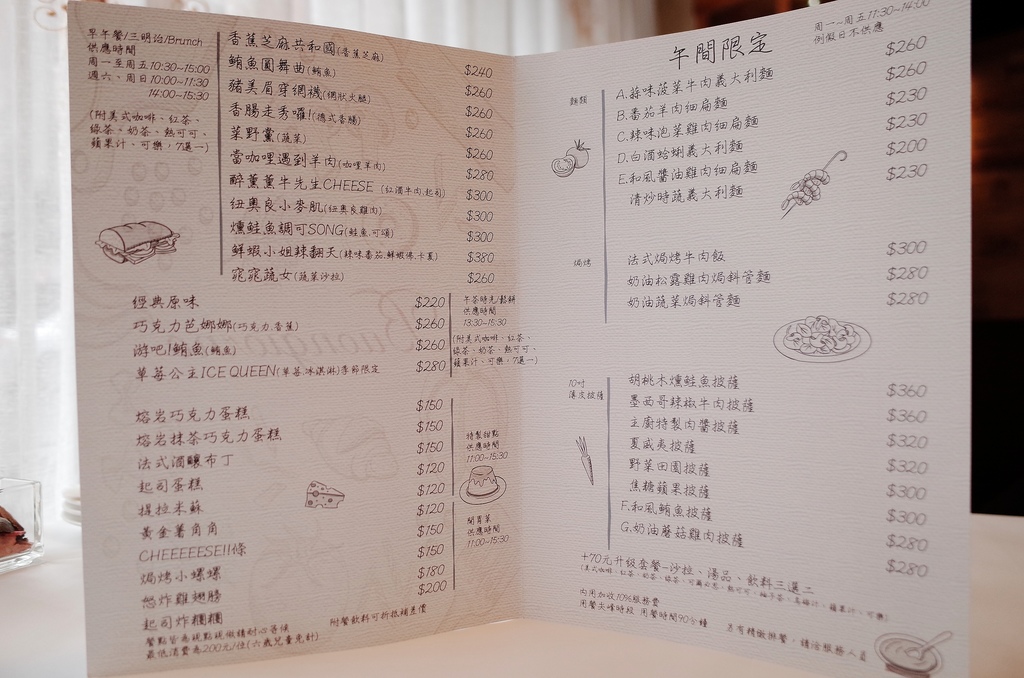 早午餐/三明治/Brunch
供應時間
周一至周五10:30~15:00
週六、周日10:00~11:30
14:00~15:30
(附美式咖啡、紅茶、
綠茶、奶茶、熱可可、
蘋果汁、可樂,7選一)
香蕉芝麻共和國(香蕉芝麻) $240
鮪魚圓舞曲(鮪魚) $260
豬美眉穿網襪(網狀火腿) $260
香腸走秀囉!(德式香腸) $260
菜野黨(蔬菜) $260
當咖哩遇到羊肉(咖哩羊肉) $280
醉薰薰牛先生CHEESE (紅酒牛肉.起司) $300
紐奧良小麥肌(紐奧良雞肉) $300
燻鮭魚調可SONG(鮭魚.可頌) $300
鮮蝦小姐辣翻天(辣味番茄.鮮蝦佛.卡夏) $380
窕窕蔬女(蔬菜沙拉) $260
經典原味 $220
巧克力芭娜娜(巧克力.香蕉) $260
游吧!鮪魚(鮪魚) $260
草莓公主ICE QUEEN(草莓.冰淇淋)季節限定 $280
午茶時光/鬆餅
供應時間
13:30~15:30
(附美式咖啡、紅茶、
綠茶、奶茶、熱可可、
蘋果汁、可樂,7選一)
熔岩巧克力蛋糕 $150
熔岩抹茶巧克力蛋糕 $150
法式酒釀布丁 $150
起司蛋糕 $120
提拉米蘇 $120
黃金薯角角 $120
CHEEEEESE!!條 $150
焗烤小螺螺 $150
怒炸雞翅膀 $180
起司炸糰糰 $200
特製甜點
供應時間
11:00~15:30
開胃菜
供應時間
11:00~15:30
附餐飲料可折抵補差價
餐點皆為現點現做請耐心等候
最低消費為200元/位(六歲兒童免計)
午間限定
周一~周五11:30~14:00
例假日不供應
麵類
A.蒜味菠菜牛肉義大利麵 $260
B.番茄羊肉細扁麵 $260
C.辣味泡菜雞肉細扁麵 $230
D.白酒蛤蜊義大利麵 $230
E.和風醬油雞肉細扁麵 $200
清炒時蔬義大利麵 $230
焗烤
法式焗烤牛肉飯 $300
奶油松露雞肉焗斜管麵 $280
奶油蔬菜焗斜管麵 $280
10吋
薄皮披薩
胡桃木燻鮭魚披薩 $360
墨西哥辣椒牛肉披薩 $360
主廚特製肉醬披薩 $320
夏威夷披薩 $320
野菜田園披薩 $300
焦糖蘋果披薩 $300
F.和風鮪魚披薩 $280
G.奶油蘑菇雞肉披薩 $280
+70元升級套餐-沙拉、湯品、飲料三選二
內用加收10%服務費
用餐尖峰時段 用餐時間90分鐘
另有精緻排餐,請洽服務人員